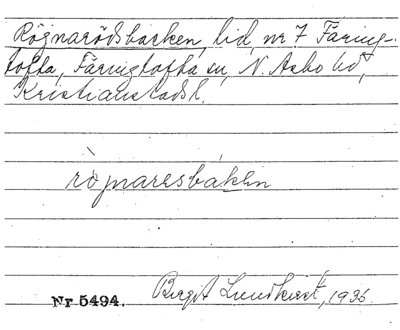 Rögnarödsbacken, lid, nr 7 Färing-
tofta, Färingtofta sn, N. Asbo hd,
Kristianstads l.
rö̀gnaresbakən
Nr 5494. Birgit Lundkvist, 1936